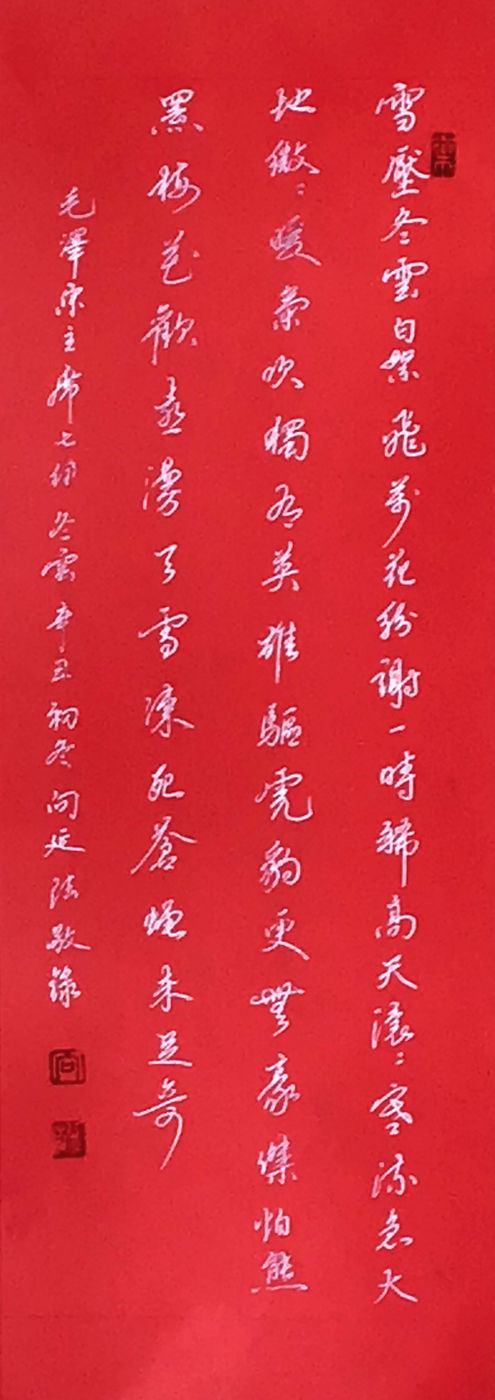 雪壓冬雲白絮飛萬花紛謝一時稀高天滾〻寒流急大
地微〻暖氣吹獨有英雄驅虎豹更無豪傑怕熊
羆梅花歡喜漫天雪凍死蒼蠅未足奇
毛澤東主席七律冬雲辛丑初冬向延法敬錄
向